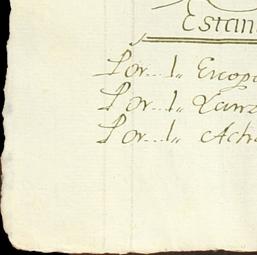 Estan
Por... 1,, Escop
Por... 1,, Lanz
Por... 1,, Ach